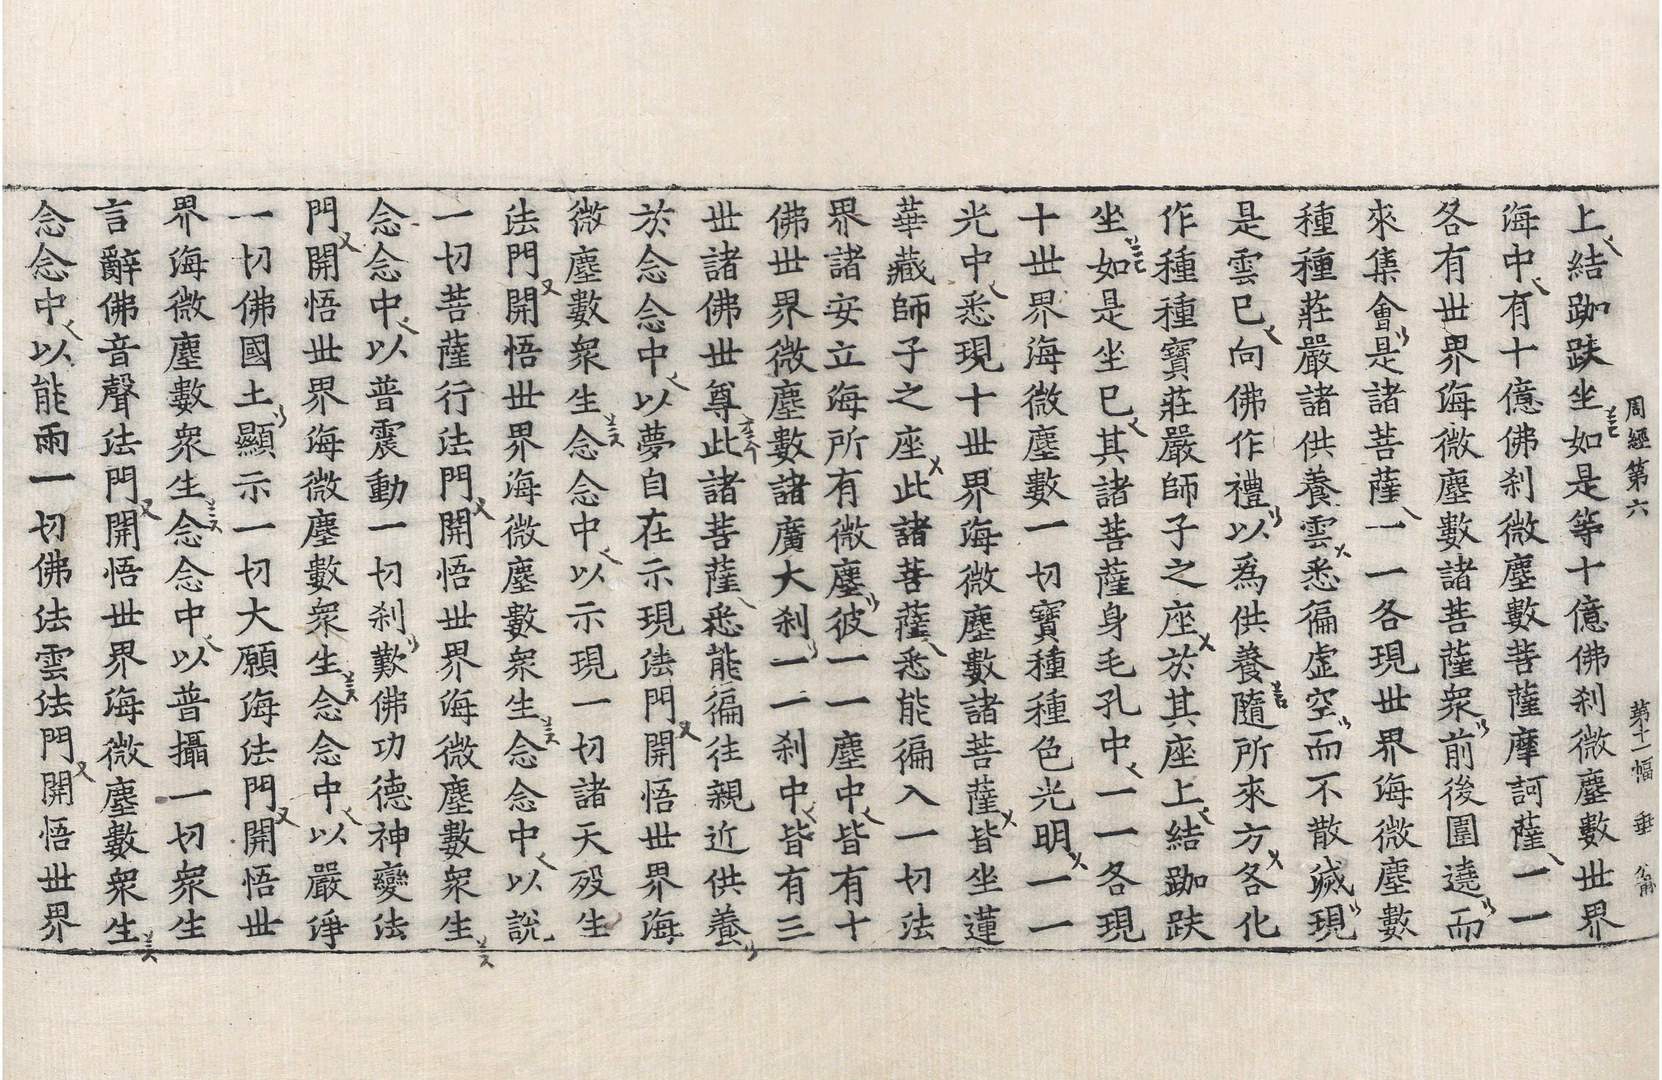 周經第六 第十一幅 垂
上結跏趺坐如是等十億佛刹微塵數世界
海中有十億佛刹微塵數菩薩摩訶薩一一
各有世界海微塵數諸菩薩衆前後圍遶而
來集會是諸菩薩一一各現世界海微塵數
種種莊嚴諸供養雲悉徧虛空而不散滅現
是雲已向佛作禮以爲供養隨所來方各化
作種種寶莊嚴師子之座於其座上結跏趺
坐如是坐已其諸菩薩身毛孔中一一各現
十世界海微塵數一切寶種種色光明一一
光中悉現十世界海微塵數諸菩薩皆坐蓮
華藏師子之座此諸菩薩悉能徧入一切法
界諸安立海所有微塵彼一一塵中皆有十
佛世界微塵數諸廣大刹一一刹中皆有三
世諸佛世尊此諸菩薩悉能徧往親近供養
於念念中以夢自在示現法門開悟世界海
微塵數衆生念念中以示現一切諸天殁生
法門開悟世界海微塵數衆生念念中以說
一切菩薩行法門開悟世界海微塵數衆生
念念中以普震動一切刹歎佛功德神變法
門開悟世界海微塵數衆生念念中以嚴淨
一切佛國土顯示一切大願海法門開悟世
界海微塵數衆生念念中以普攝一切衆生
言辭佛音聲法門開悟世界海微塵數衆生
念念中以能雨一切佛法雲法門開悟世界